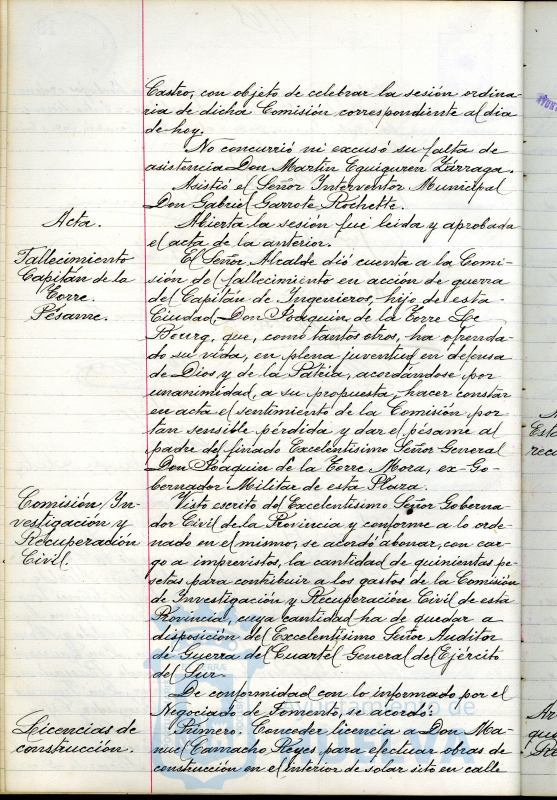 Castro, con objeto de celebrar la sesión ordina-
ria de dicha Comisión correspondiente al dia
de hoy.
No concurrió ni excusó su falta de
asistencia Don Martín Eguiguren Zárraga.
Asistió el Señor Interventor Municipal
Don Gabriel Garrote Rochette.
Acta.
Abierta la sesión fué leida y aprobada
el acta de la anterior.
Fallecimiento
Capitán de la
Torre.
Pésame.
El Señor Alcalde dió cuenta a la Comi-
sión de fallecimiento en acción de guerra
del Capitán de Ingenieros, hijo de esta
Ciudad, Don Joaquin de la Torre Le
Bourg, que, como tantos otros, ha ofrenda-
do su vida, en plena juventud en defensa
de Dios y de la Patria, acordándose por
unanimidad, a su propuesta, hacer constar
en acta el sentimiento de la Comisión por
tan sensible pérdida y dar el pésame al
padre del finado Excelentísimo Señor General
Don Joaquin de la Torre Mora, ex-Go-
bernador Militar de esta Plaza.
Comisión In-
vestigación y
Recuperación
Civil.
Visto escrito del Excelentísimo Señor Goberna-
dor Civil de la Provincia y conforme a lo orde-
nado en el mismo, se acordó abonar, con car-
go a imprevistos, la cantidad de quinientas pe-
setas para contribuir a los gastos de la Comisión
de Investigación y Recuperación Civil de esta
Provincia, cuya cantidad ha de quedar a
disposición del Excelentísimo Señor Auditor
de Guerra del Cuartel General del Ejército
del Sur.
De conformidad con lo informado por el
Negociado de Fomento, se acordó:
Licencias de
construcción.
Primero: Conceder licencia a Don Ma-
nuel Camacho Reyes para efectuar obras de
construcción en el interior de solar sito en calle
Ayuntamiento de
HUELVA